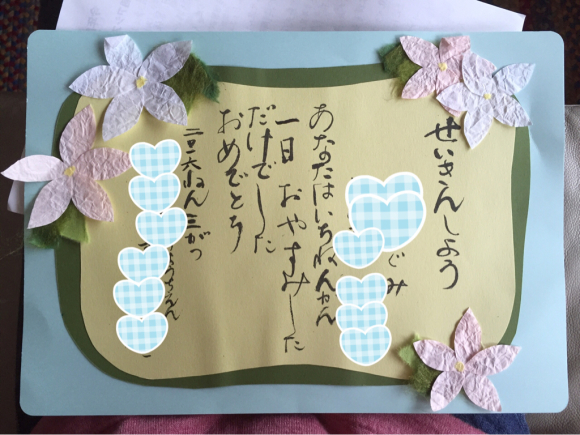 せいきんしょう
ぐみ
あなたはいちねんかん
一日おやすみした
だけでした
おめでとう
二〇一六ねん三がつ
ようちえん